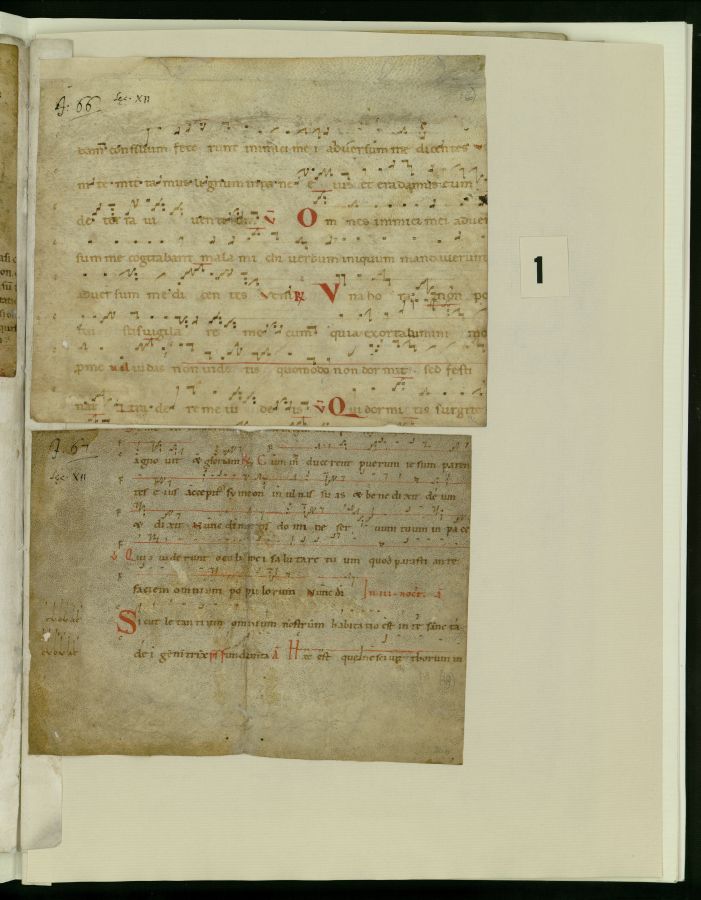 A: 66. Sęc. XII
eam consilium fece runt inimici mei adversum me dicentes
mite mit ta mus lignum in pa ne e ius et eradamus eum
de ter ra vi ventium ℣ Om nes inimici mei adver
sum me cogitabant mala mi chi verbum iniquum mandaverunt
adver sum me di cen tes Veni ℟ Vna ho ra non po
tui stis vigila re me cum quia exortabimini mo
pme vel iudas non vide tis quomodo non dormit sed festi
nat tra de re me iu de is ℣ Qui dor mi tis surgite
A: 67 Sęc. XII
agno vit & gloriam Cum in ducerent puerum iesum paren
tes e ius accepit symeon in ulnas su as & bene dixit deum
& dixit Nunc dimittis do mi ne ser vum tuum in pace
℣ Quia viderunt oculi mei salutare tu um quod parasti ante
faciem omnium po pu lorum Nunc di In III noct. A
Sicut letantium omnium nostrum habitatio est in te sancta
dei genitrix A Hec est que nescivit thorum in
1